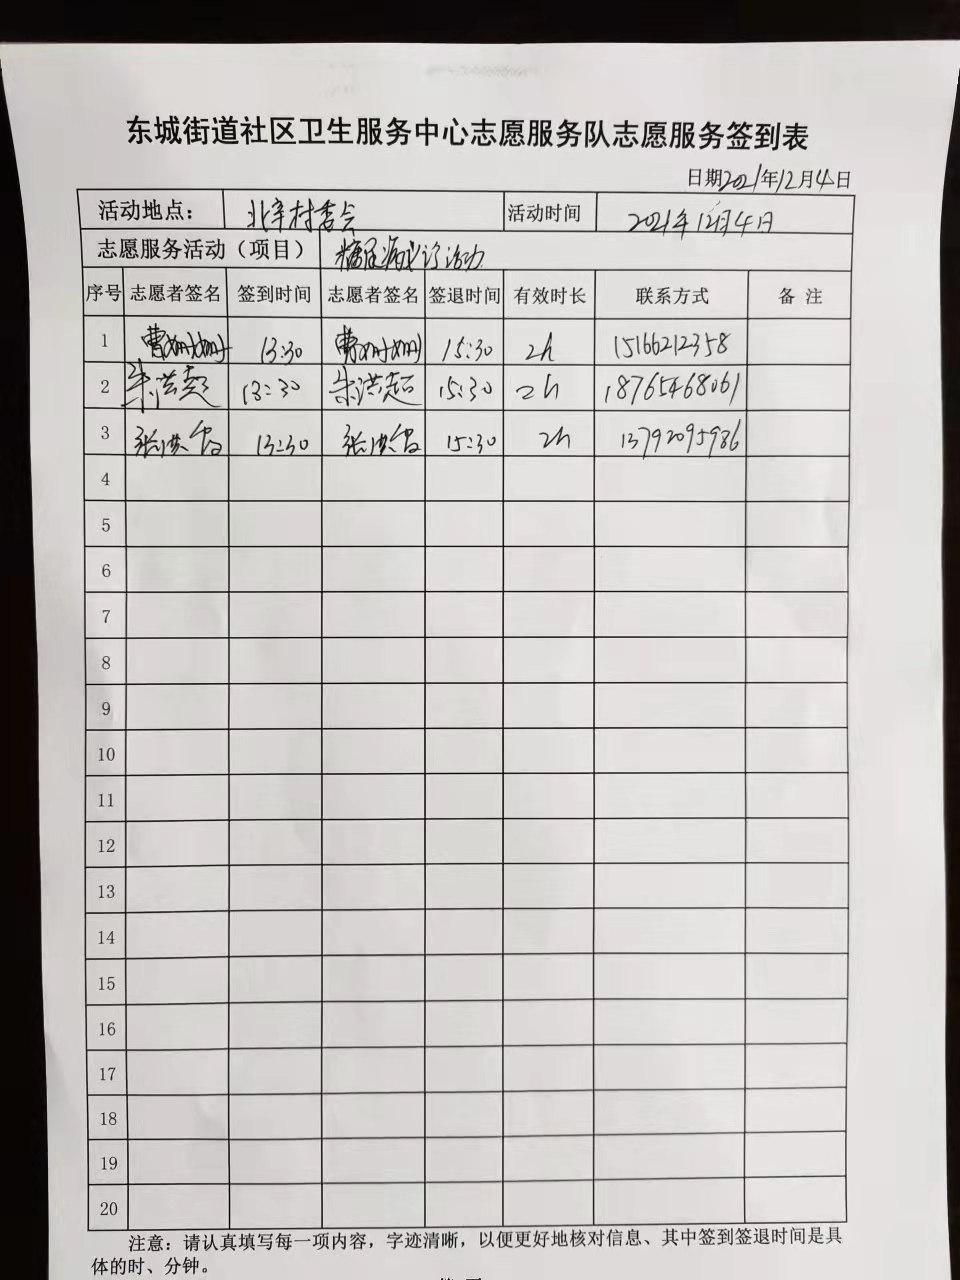 东城街道社区卫生服务中心志愿服务队志愿服务签到表
日期2021年12月4日
活动地点: 北辛村委会 活动时间 2021年12月4日
志愿服务活动（项目） 糖尿病义诊活动
序号 志愿者签名 签到时间 志愿者签名 签退时间 有效时长 联系方式 备 注
1 曹姗姗 13:30 曹姗姗 15:30 2h 15166212358
2 朱洪超 13:30 朱洪超 15:30 2h 18765468061
3 13:30 15:30 2h 13792095986
4
5
6
7
8
9
10
11
12
13
14
15
16
17
18
19
20
注意：请认真填写每一项内容，字迹清晰，以便更好地核对信息、其中签到签退时间是具
体的时、分钟。